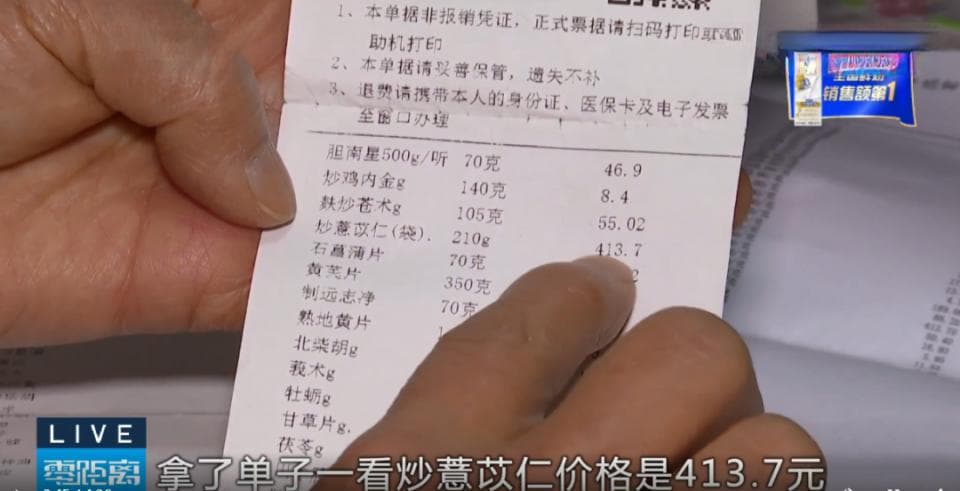 1、本单据非报销凭证，正式票据请扫码打印或
助机打印
2、本单据请妥善保管，遗失不补
3、退费请携带本人的身份证、医保卡及电子发票
至窗口办理
胆南星500g/听 70克 46.9
炒鸡内金g 140克 8.4
麸炒苍术g 105克 55.02
炒薏苡仁(袋). 210g 413.7
石菖蒲片 70克 2
黄芪片 350克
制远志净 70克
熟地黄片 1
北柴胡g
莪术g
牡蛎g
甘草片g.
茯苓g
全国鲜奶
销售额第1
LIVE
零距离
拿了单子一看炒薏苡仁价格是413.7元